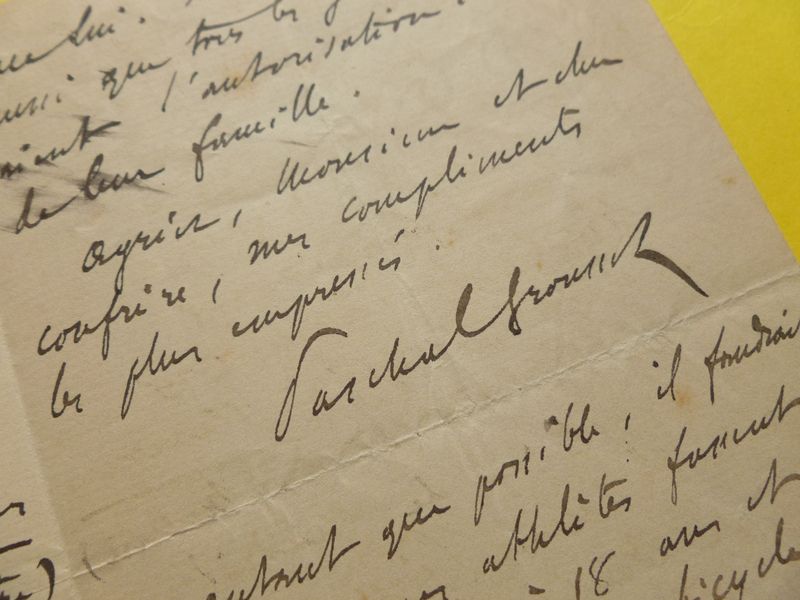 lui.
aussi que tous les
l'autorisation.
de leur famille.
Agréez, Monsieur et cher
confrère, mes compliments
les plus empressés.
Paschal Grousset
autant que possible, il faudrait
athlètes fussent
à 18 ans et
bicycle